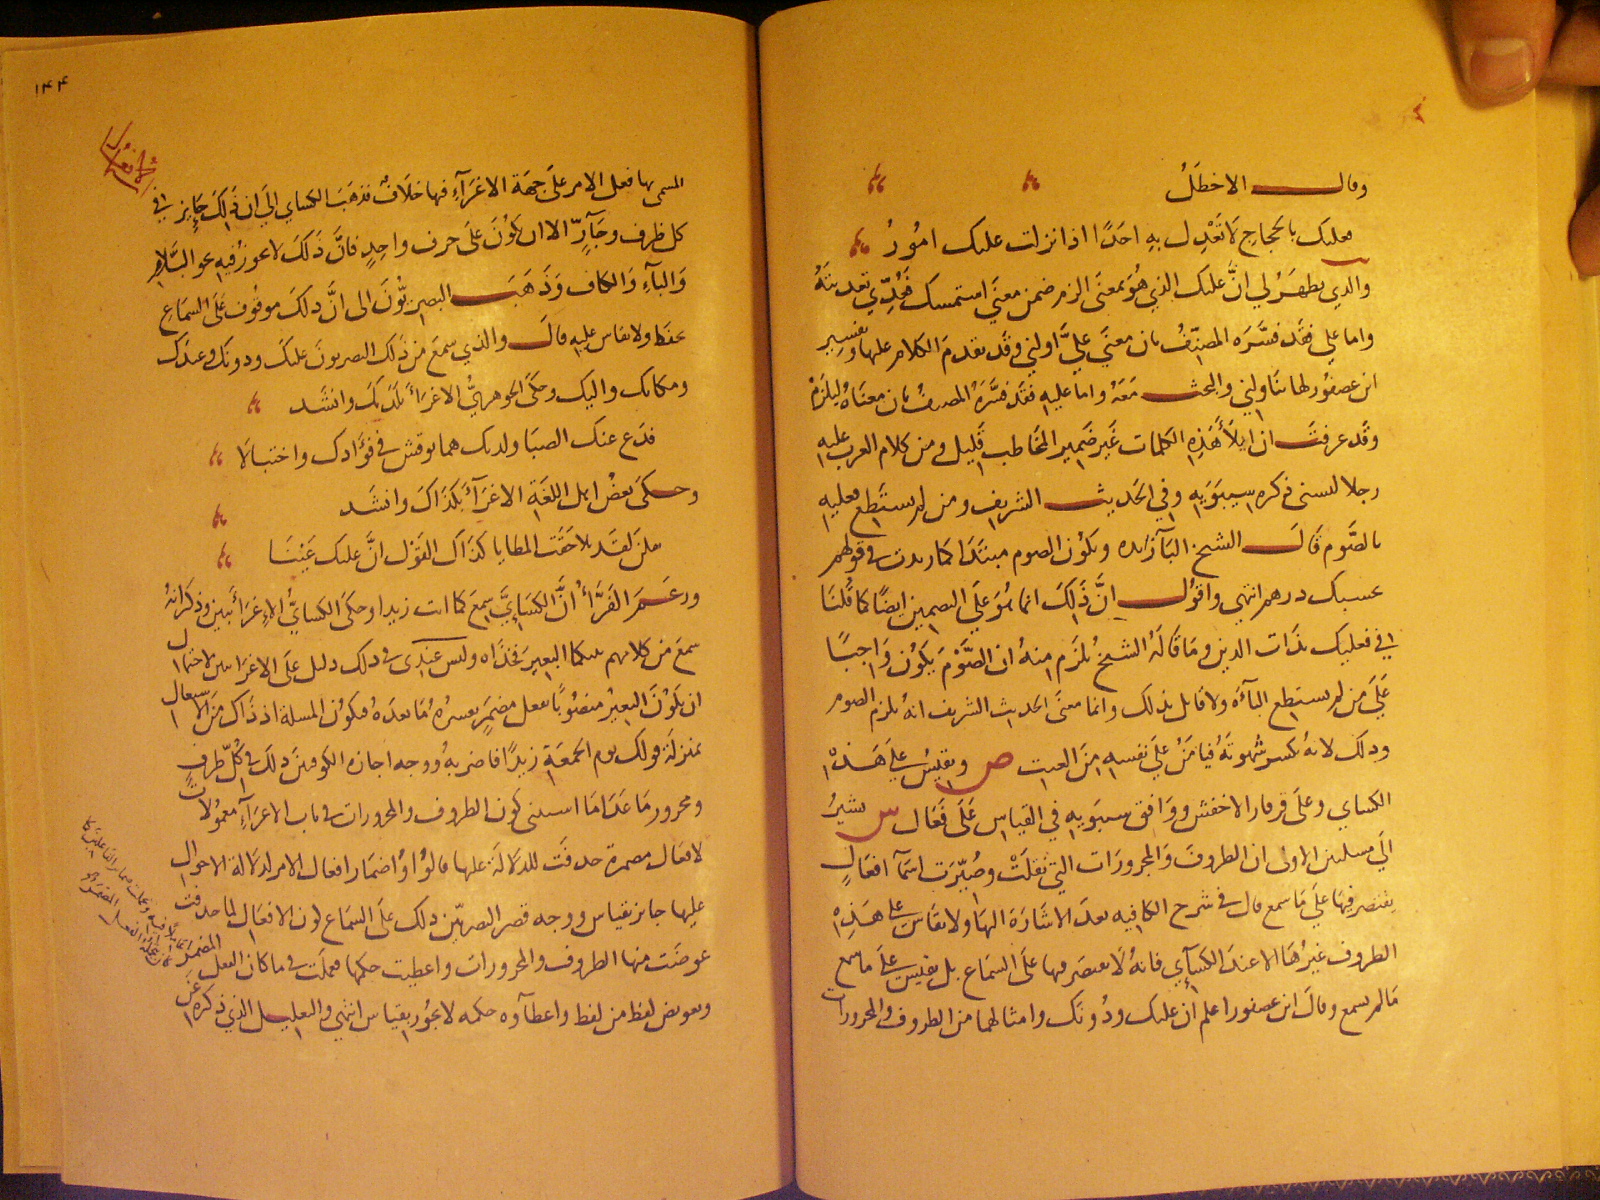 وقال الاخطل
فعليك بالحجاج لا تعدل به احدا اذا نزلت عليك امور
والذي يظهر لي ان عليك الذي هو بمعنى الزم ضمن معنى استمسك فعدي تعديته
واما علي فقد فسره المصنف بان معنى علي اولني وقد تقدم الكلام عليها وتفسير
ابن عصفور لها بناولني والبحث معه واما عليه فقد فسره المصنف بان معناه ليلزم
وقد عرفت ان ايلاء هذه الكلمات غير ضمير المخاطب قليل ومن كلام العرب عليه
رجلا ليسني ذكره سيبويه وفي الحديث الشريف ومن لم يستطع فعليه
بالصوم قال الشيخ الباء زائده ويكون الصوم مبتدا كما زيدت في قولهم
بحسبك درهم انتهى واقول ان ذلك انما هو على التضمين ايضا كما قلنا
في فعليك بذات الدين وما قاله الشيخ يلزم منه ان الصوم يكون واجبا
على من لم يستطع الباءه ولا قايل بذلك وانما معنى الحديث الشريف انه يلزم الصوم
وذلك لانه يكسر شهوته فيامن على نفسه من العنت ص ويقيس على هذه
الكساي وعلى قرقار الاخفش ووافق سيبويه في القياس على فعال س يشير
الى مسلتين الاولى ان الظروف والمجرورات التي نقلت وصيرت اسماء افعال
يقتصر فيها على ما سمع قال في شرح الكافيه بعد الاشارة اليها ولا يقاس على هذه
الظروف غيرها الا عند الكساءي فانه لا يقتصر فيها على السماع بل يقيس على ما سمع
ما لم يسمع وقال ابن عصفور اعلم ان عليك ودونك وامثالهما من الظروف والمجرورات
١۴۴
المسمى بها فعل الامر على جهة الاغراء فيها خلاف فذهب الكساي الى ان ذلك جايز في
كل ظرف وجار الا ان يكون على حرف واحد فان ذلك لا يجوز فيه نحو اللام
والباء والكاف وذهب البصريون الى ان ذلك موقوف على السماع
يحفظ ولا يقاس عليه قال والذي سمع من ذلك البصريون عليك ودونك وعندك
ومكانك واليك وحكى الجوهري الاغراء بلديك وانشد
فدع عنك الصبا ولديك هما توقش في فؤادك واختبالا
وحكى بعض اهل اللغة الاغراء بكذاك وانشد
يقلن لقد تلاحقت المطايا كذاك القول ان عليك عينا
وزعم الفراء ان الكساءي سمع كما انت زيدا وحكى الكساءي الاغراء ببين وذكر انه
سمع من كلامهم بينكما البعير فخذاه وليس عندي في ذلك دليل على الاغراء ببين لاحتمال
ان يكون البعير منصوبا بفعل مضمر يفسره ما بعده فتكون المسلة اذ ذاك من الاشتغال
بمنزلة قولك يوم الجمعة زيدا فاضربه ووجه اجازه الكوفيين ذلك في كل ظرف
ومجرور ما عدا ما استثنى كون الظروف والمجرورات في باب الاغراء معمولات
لافعال مضمرة حذفت للدلالة عليها قالوا واضمار افعال الامر لدلالة الاحوال
عليها جايز بقياس ووجه قصر البصريين ذلك على السماع كون الافعال لما حذفت
عوضت منها الظروف والمجرورات واعطيت حكمها فعملت في ما كان الفعل المضمر
وتعويض لفظ من لفظ واعطاءه حكمه لا يجوز بقياس انتهى والتعليل الذي ذكره عن